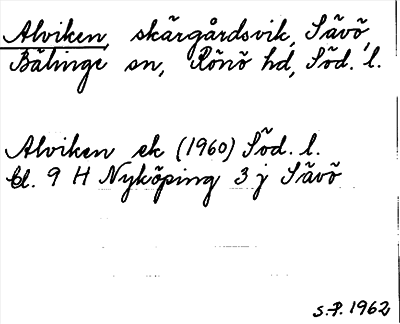 Alviken, skärgårdsvik, Sävö,
Bälinge sn, Rönö hd, Söd. l.
Alviken ek (1960) Söd. l.
Bl. 9 H Nyköping 3 j Sävö
S.P. 1962